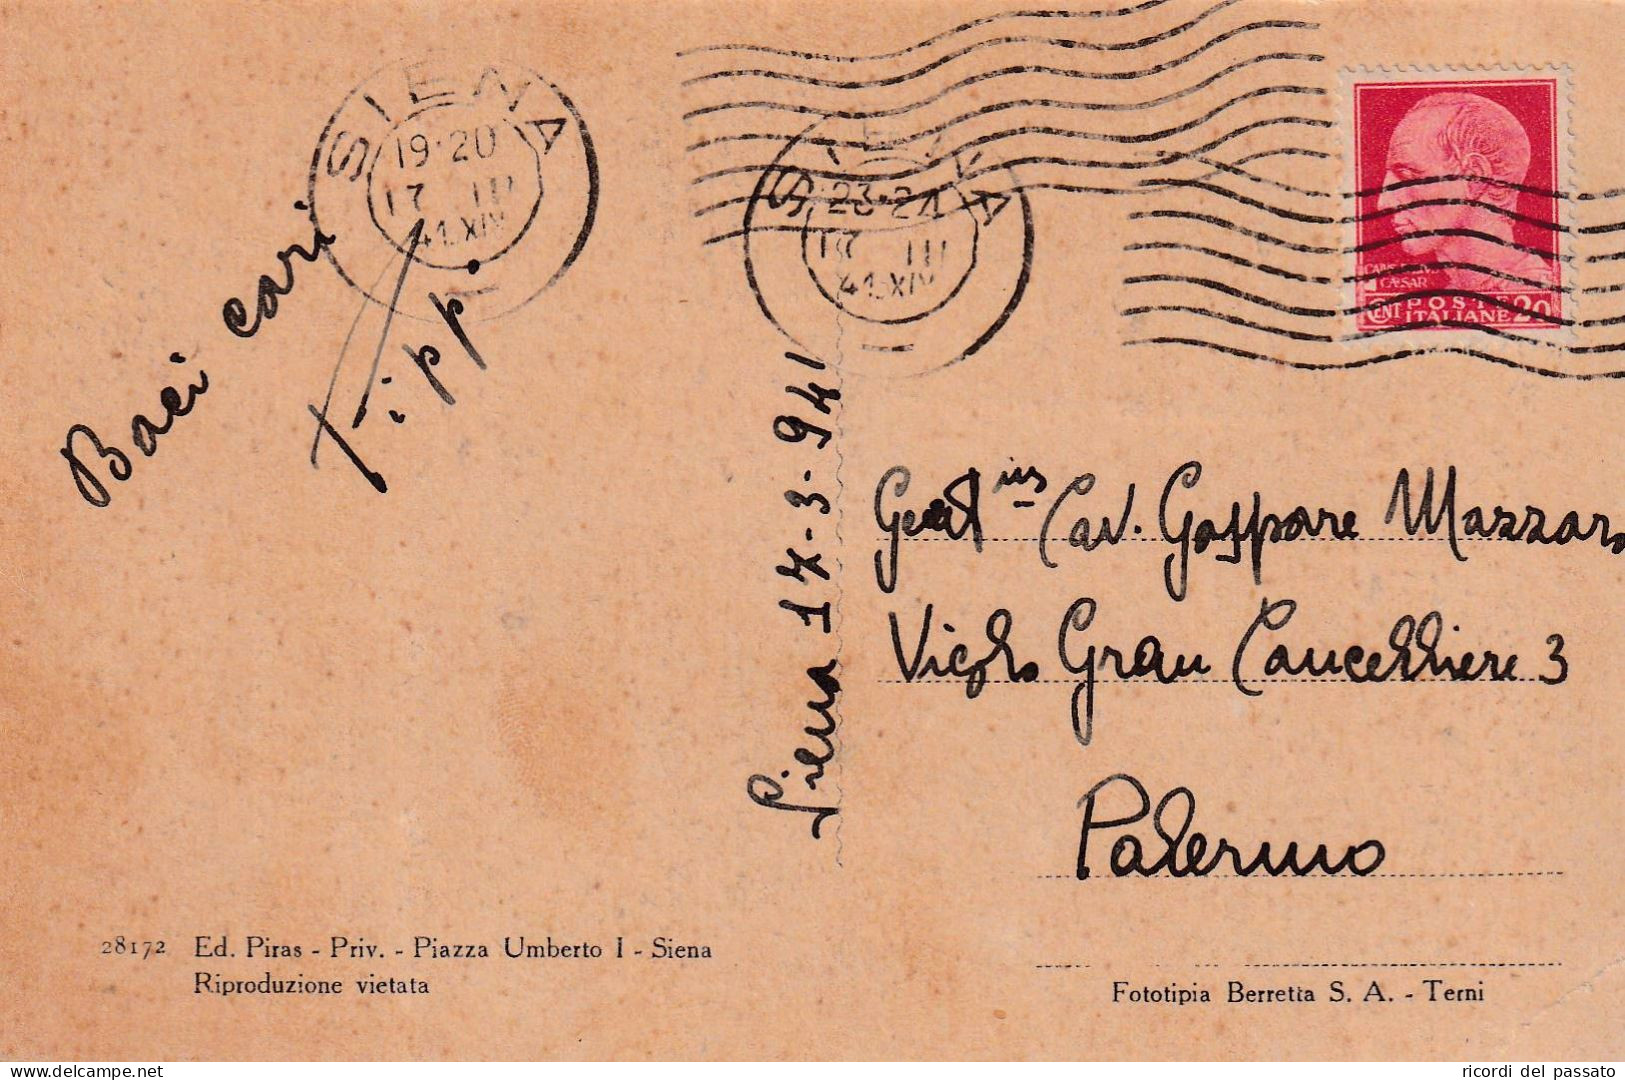 SIENA
19·20
17 III
41.XIX
SIENA
23·24
17 III
41.XIX
CAESAR
CENT POSTE 20
ITALIANE
Baci cari
Pippi
Siena 17.3.941
Gent ms Cav. Gaspare Mazzara
Vicolo Gran Cancelliere 3
Palermo
28172 Ed. Piras - Priv. - Piazza Umberto I - Siena
Riproduzione vietata
Fototipia Berretta S. A. - Terni
delcampe.net
ricordi del passato